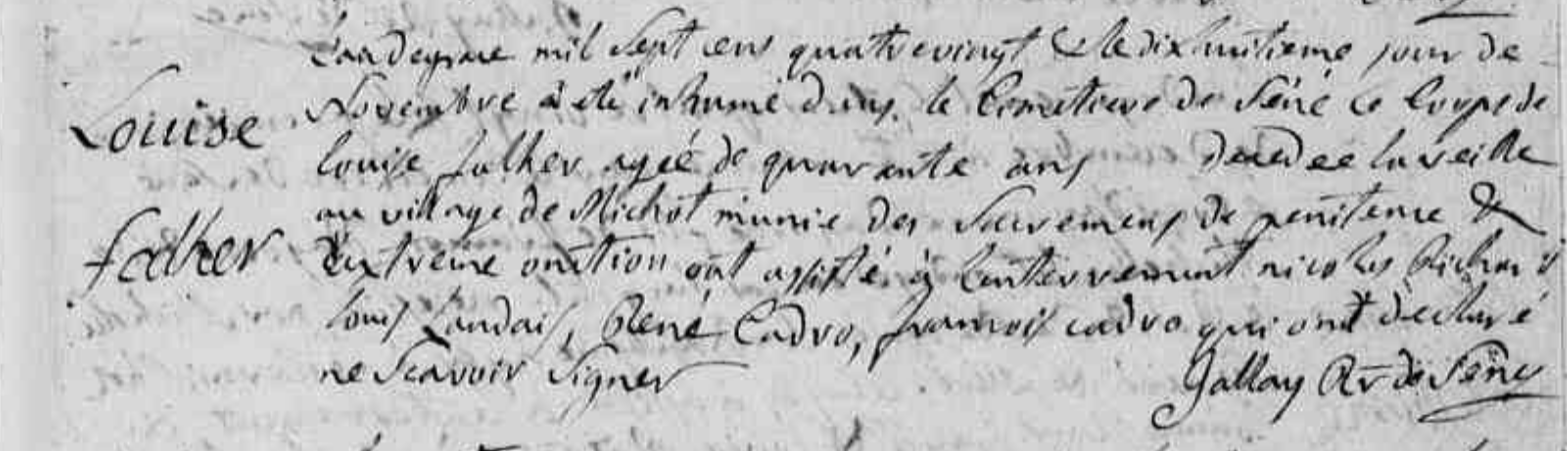 Louise
falher
L'an de grace mil sept cens quatrevingt & le dix huitieme jour de
Novembre à eté inhumé dans le Cimetiere de Séné le Corps de
louise falher agée de quarante ans decedee la veille
au village de Michot munie des sacremens de penitence &
d'extreme onction ont assisté à l'enterrement nicolas Richard
louis Landais, René Cadro, francois cadro qui ont declaré
ne scavoir signer
Jallay Rr de Séné